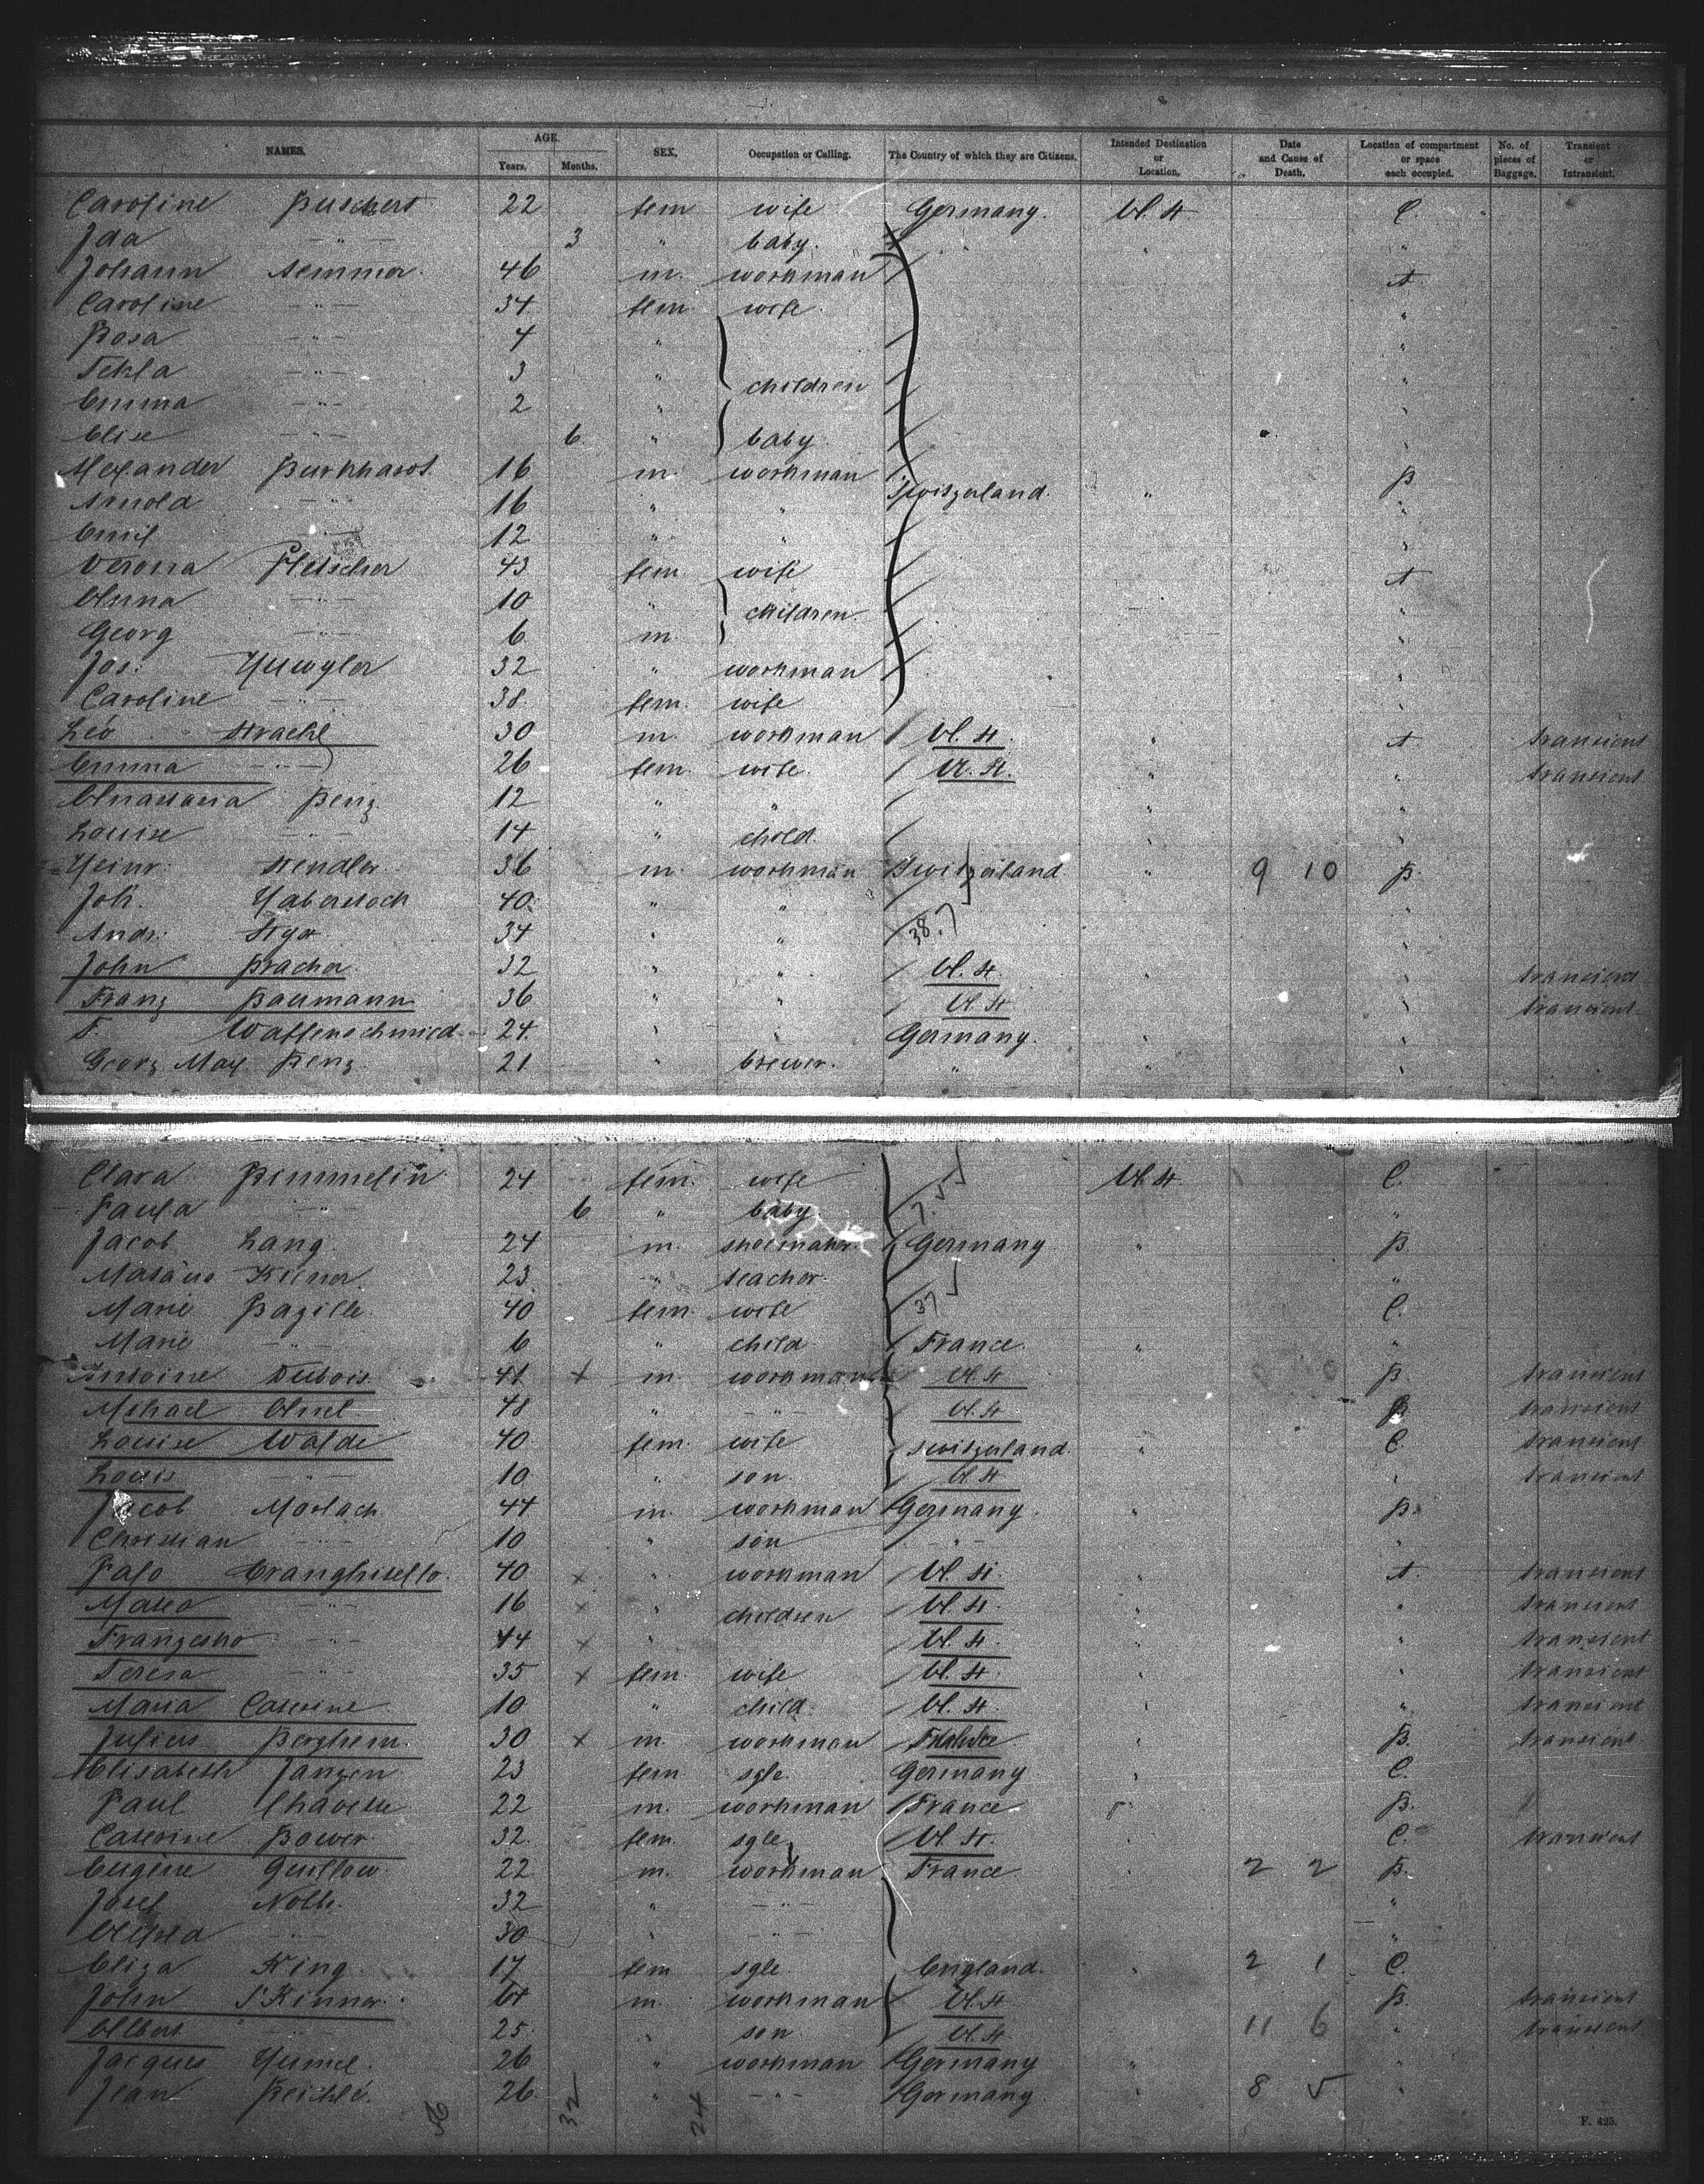 NAMES. AGE. Years. Months. SEX. Occupation or Calling. The Country of which they are Citizens. Intended Destination or Location. Date and Cause of Death. Location of compartment or space each occupied. No. of pieces of Baggage. Transient or Intransient.
Caroline 22 fem wife Germany. U. St. C.
Ida -"- 3 " baby. " " "
Johann 46 m. workman A.
Caroline -"- 34 fem. wife. "
Rosa -"- 4 " "
Tekla -"- 3 " children "
Emma -"- 2 "
Elise -"- 6 " baby
Alexander Burkhardt 16 m. workman B
Arnold -"- 16 " " Switzerland. "
Emil 12 " "
Verona Fletscher 43 fem wife A
Anna -"- 10 " children. "
Georg -"- 6 m.
Jos. Huwyler 32 " workman
Caroline -"- 38. fem. wife
Léo Strachl 30 m. workman U. St. A. transient
Emma -"- 26 fem. wife. U. St. " transient
Anastasia Benz 12 " " "
Louise -"- 14 " child.
Heinr. Stendler 36 m. workman Switzerland " 9 10 B.
Joh. Haberstoch 40. " "
Andr. 34 " " 38.7
John Bracher 32 " " U. St. transient
Franz Baumann 36 " " U. St transient
F. Waffenschmied 24. " " Germany.
Georg Max Benz 21 " brewer. "
Clara Bimmelin 24 fem. wife U. St. C.
Paula -"- 6 " baby "
Jacob Lang 24 m. shoemaker. Germany " B.
Kiener 23. " teacher. "
Marie Bazille. 40 fem. wife 37 C.
Marie -"- 6 " child France. " "
Antoine Dubois. 41 x m. workman U. St B. transient
Michael 48 " -"- U. St. B. transient
Louise Walde 40. fem. wife Switzerland. " C. transient
Louis -"- 10 " son. U. St " transient
Jacob Morlach 44 m. workman Germany. " B.
Christian -"- 10 " son -"- "
40 x " workman U. St. " A. transient
-"- 16 x " children U. St. " " transient
Franzesko -"- 14 x " U. St. " " transient
Teresa -"- 35 x fem. wife U. St. " " transient
Maria Caterine. 10 " child. U. St. " " transient
Julius Bergheim. 30 x m. workman " B. transient
Elisabeth Janzen 23 fem. sgle. Germany " C.
Paul Chavette 22 m. workman France B.
Caterine Bower. 32. fem. sgle. U. St. C. transient
Eugène Guillow. 22 m. workman France " 2 2 B.
Josef Nolb. 32 " -"- "
-"- 30 " -"- "
Eliza King 17 fem sgle. England. " 2 1 C.
John S'Kinner. m. workman U. St B. transient
Albert -"- 25. " son. U. St. 11 6 " transient
Jacques Humel. 26 " workman Germany " "
Jean Beichlé. 26 " -"- Germany " 8 5 "
32 24
F. 425.